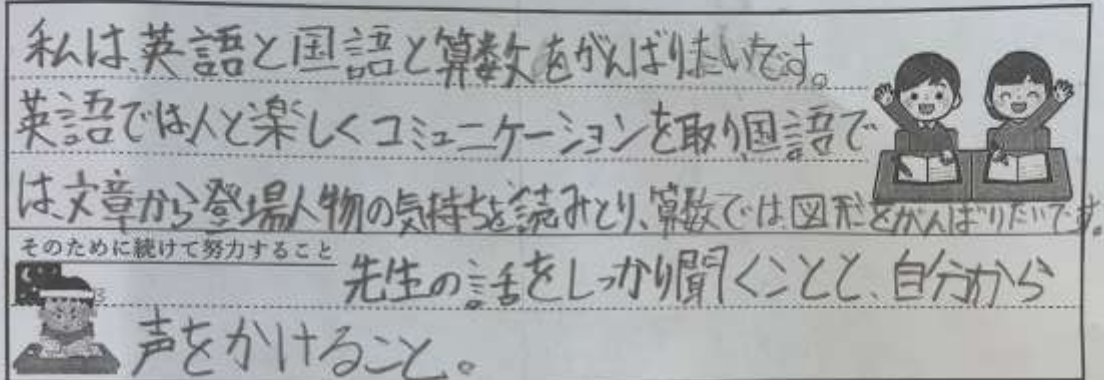 私は、英語と国語と算数をがんばりたいです。
英語では人と楽しくコミュニケーションを取り、国語で
は、文章から登場人物の気持ちを読みとり、算数では図形をがんばりたいです。
そのために続けて努力すること
先生の話をしっかり聞くことと、自分から
声をかけること。